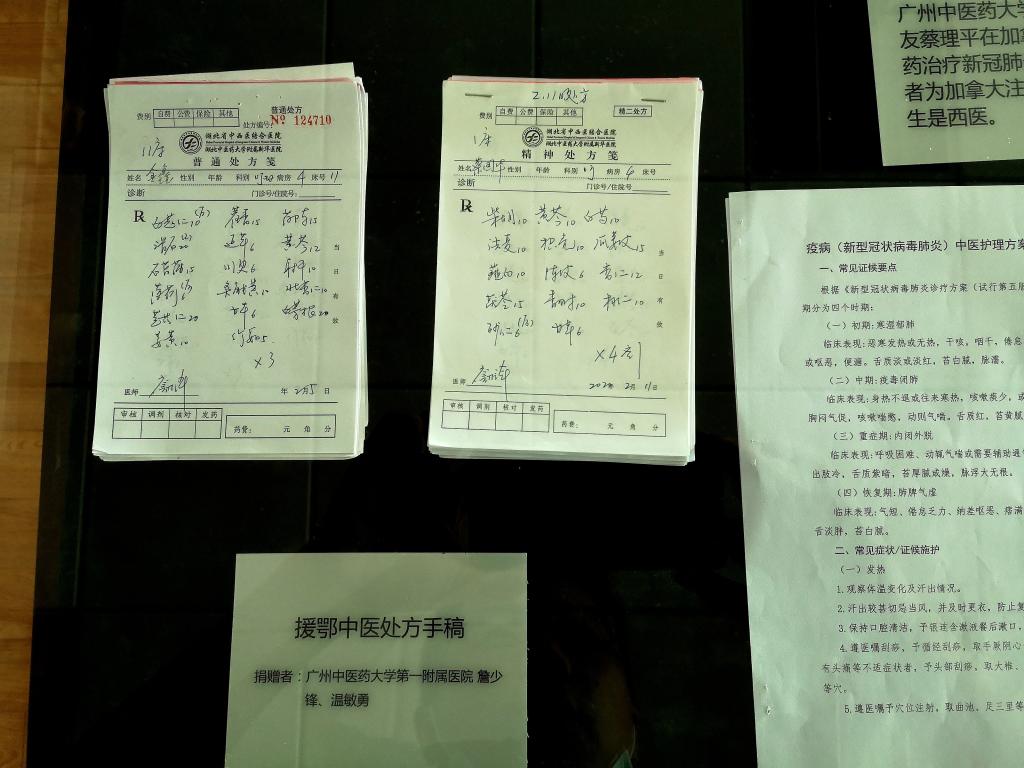 普通处方
费别
自费 公费 保险 其他
处方编号:
Nº 124710
湖北省中西医结合医院
湖北中医药大学附属新华医院
普通处方笺
姓名 性别 年龄 科别 病房 4 床号 11
诊断 门诊号/住院号:
R
滑石
连翘 6 黄芩 12
川贝 6
薄荷
甘草 6
姜黄 10
×3
当日有效
医师 年 2月5日
审核 调剂 核对 发药
药费: 元 角 分
2.11日处方
费别
自费 公费 保险 其他
精二处方
湖北省中西医结合医院
湖北中医药大学附属新华医院
精神处方笺
姓名 性别 年龄 科别 病房 6 床号
诊断 门诊号/住院号:
R
柴胡10 黄芩10 白芍10
法夏10 枳壳10 瓜蒌皮15
薤白10 陈皮6 杏仁12
茯苓15 桃仁10
砂仁6 甘草6
×4剂
当日有效
医师 2020年2月11日
审核 调剂 核对 发药
药费: 元 角 分
援鄂中医处方手稿
捐赠者:广州中医药大学第一附属医院 詹少
锋、温敏勇
广州中医药大学
友蔡理平在加拿
药治疗新冠肺
者为加拿大注
生是西医。
疫病(新型冠状病毒肺炎)中医护理方案
一、常见证候要点
根据《新型冠状病毒肺炎诊疗方案(试行第五版
期分为四个时期:
(一)初期:寒湿郁肺
临床表现:恶寒发热或无热,干咳,咽干,倦怠
或呕恶,便溏。舌质淡或淡红,苔白腻,脉濡。
(二)中期:疫毒闭肺
临床表现:身热不退或往来寒热,咳嗽痰少,或
胸闷气促,咳嗽喘憋,动则气喘。舌质红,苔黄腻
(三)重症期:内闭外脱
临床表现:呼吸困难、动辄气喘或需要辅助通气
出肢冷,舌质紫暗,苔厚腻或燥,脉浮大无根。
(四)恢复期:肺脾气虚
临床表现:气短、倦怠乏力、纳差呕恶、痞满
舌淡胖,苔白腻。
二、常见症状/证候施护
(一)发热
1.观察体温变化及汗出情况。
2.汗出较甚切忌当风,并及时更衣,防止复
3.保持口腔清洁,予银连含漱液餐后漱口,
4.遵医嘱刮痧,予循经刮痧,取手厥阴心
有头痛等不适症状者,予头部刮痧,取大椎、
等穴。
5.遵医嘱予穴位注射,取曲池、足三里等